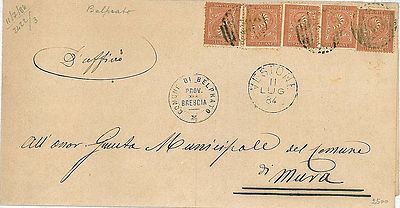 Belprato
11/7/84
2422/3
D'uffizio
COMUNE DI BELPRATO
PROV.
BRESCIA
VESTONE
11
LUG
84
All'onor. Giunta Municipale del Comune
di Mura
2500